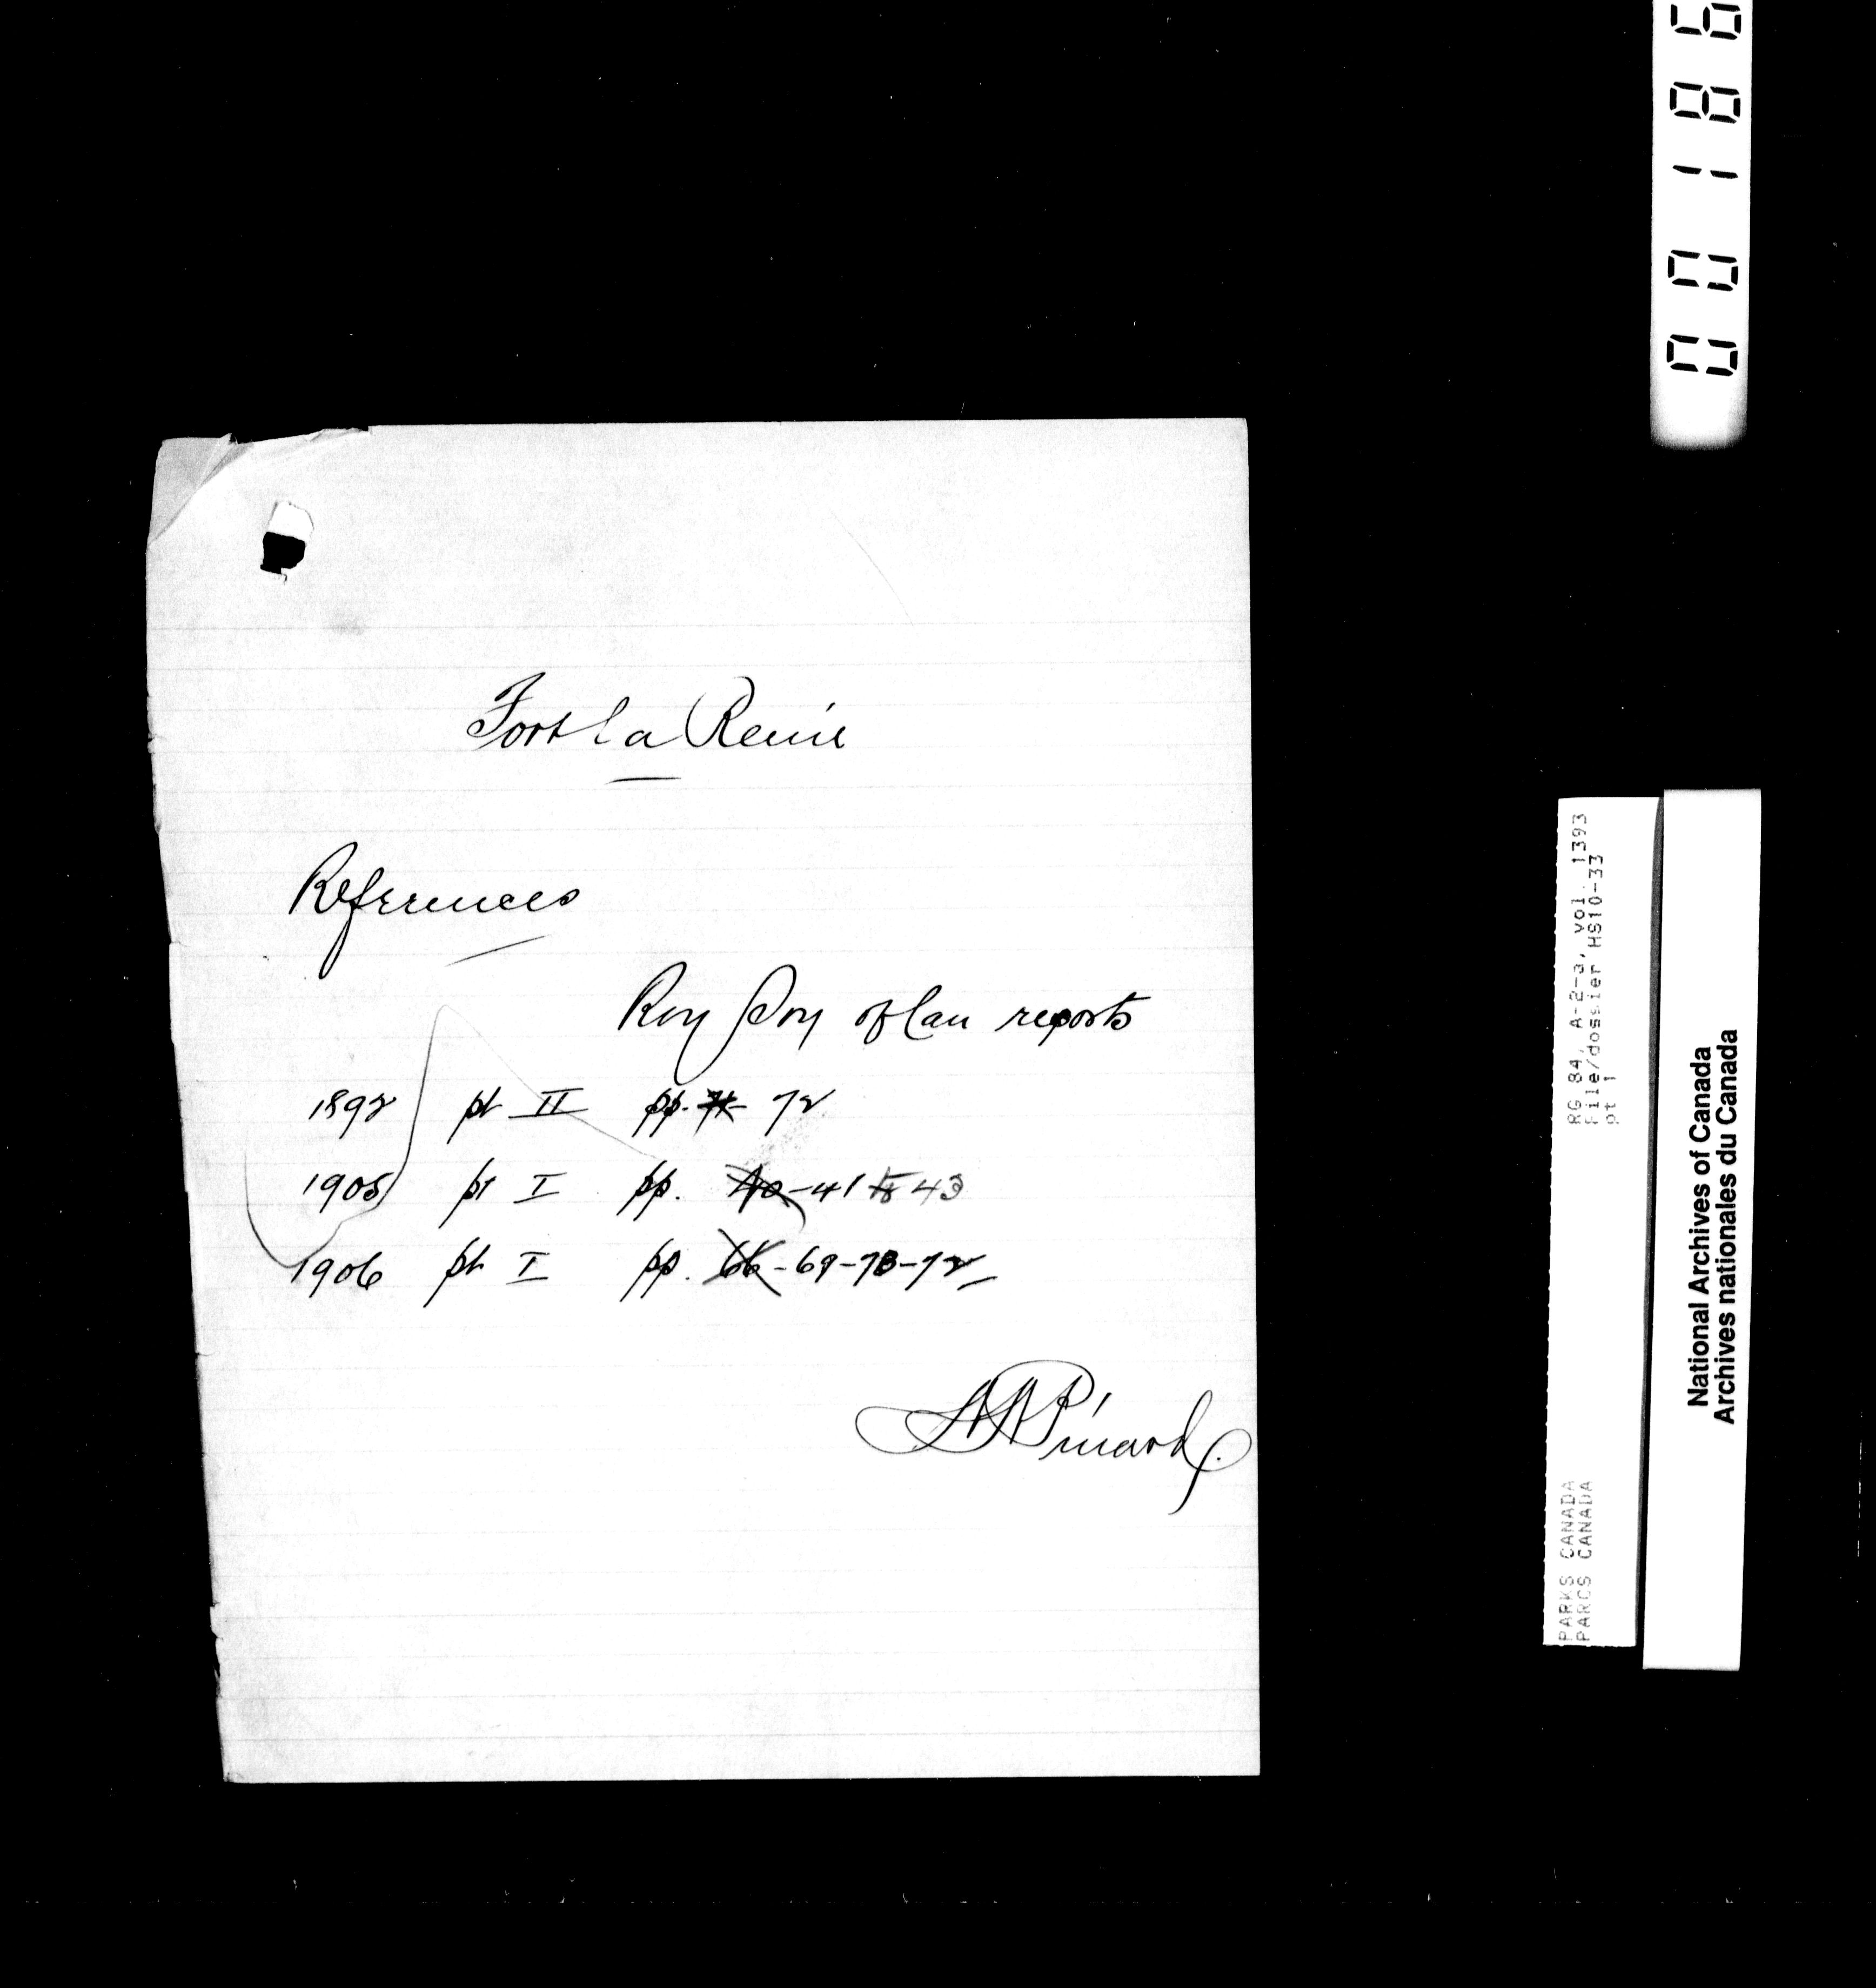 Fort la Reine
References
Roy Soy of Can reports
1892 pt II pp. 71- 72
1905 pt I pp. 40-41 to 43
1906 pt I pp. 66-69-70-72
AAPinard.
00186
RG 84, A-2-a, vol. 1393
File/dossier HS10-33
pt 1
PARKS CANADA
PARCS CANADA
National Archives of Canada
Archives nationales du Canada